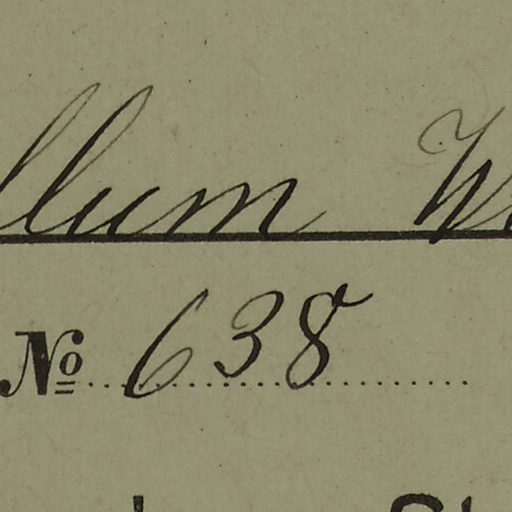 llum W
Nº 638